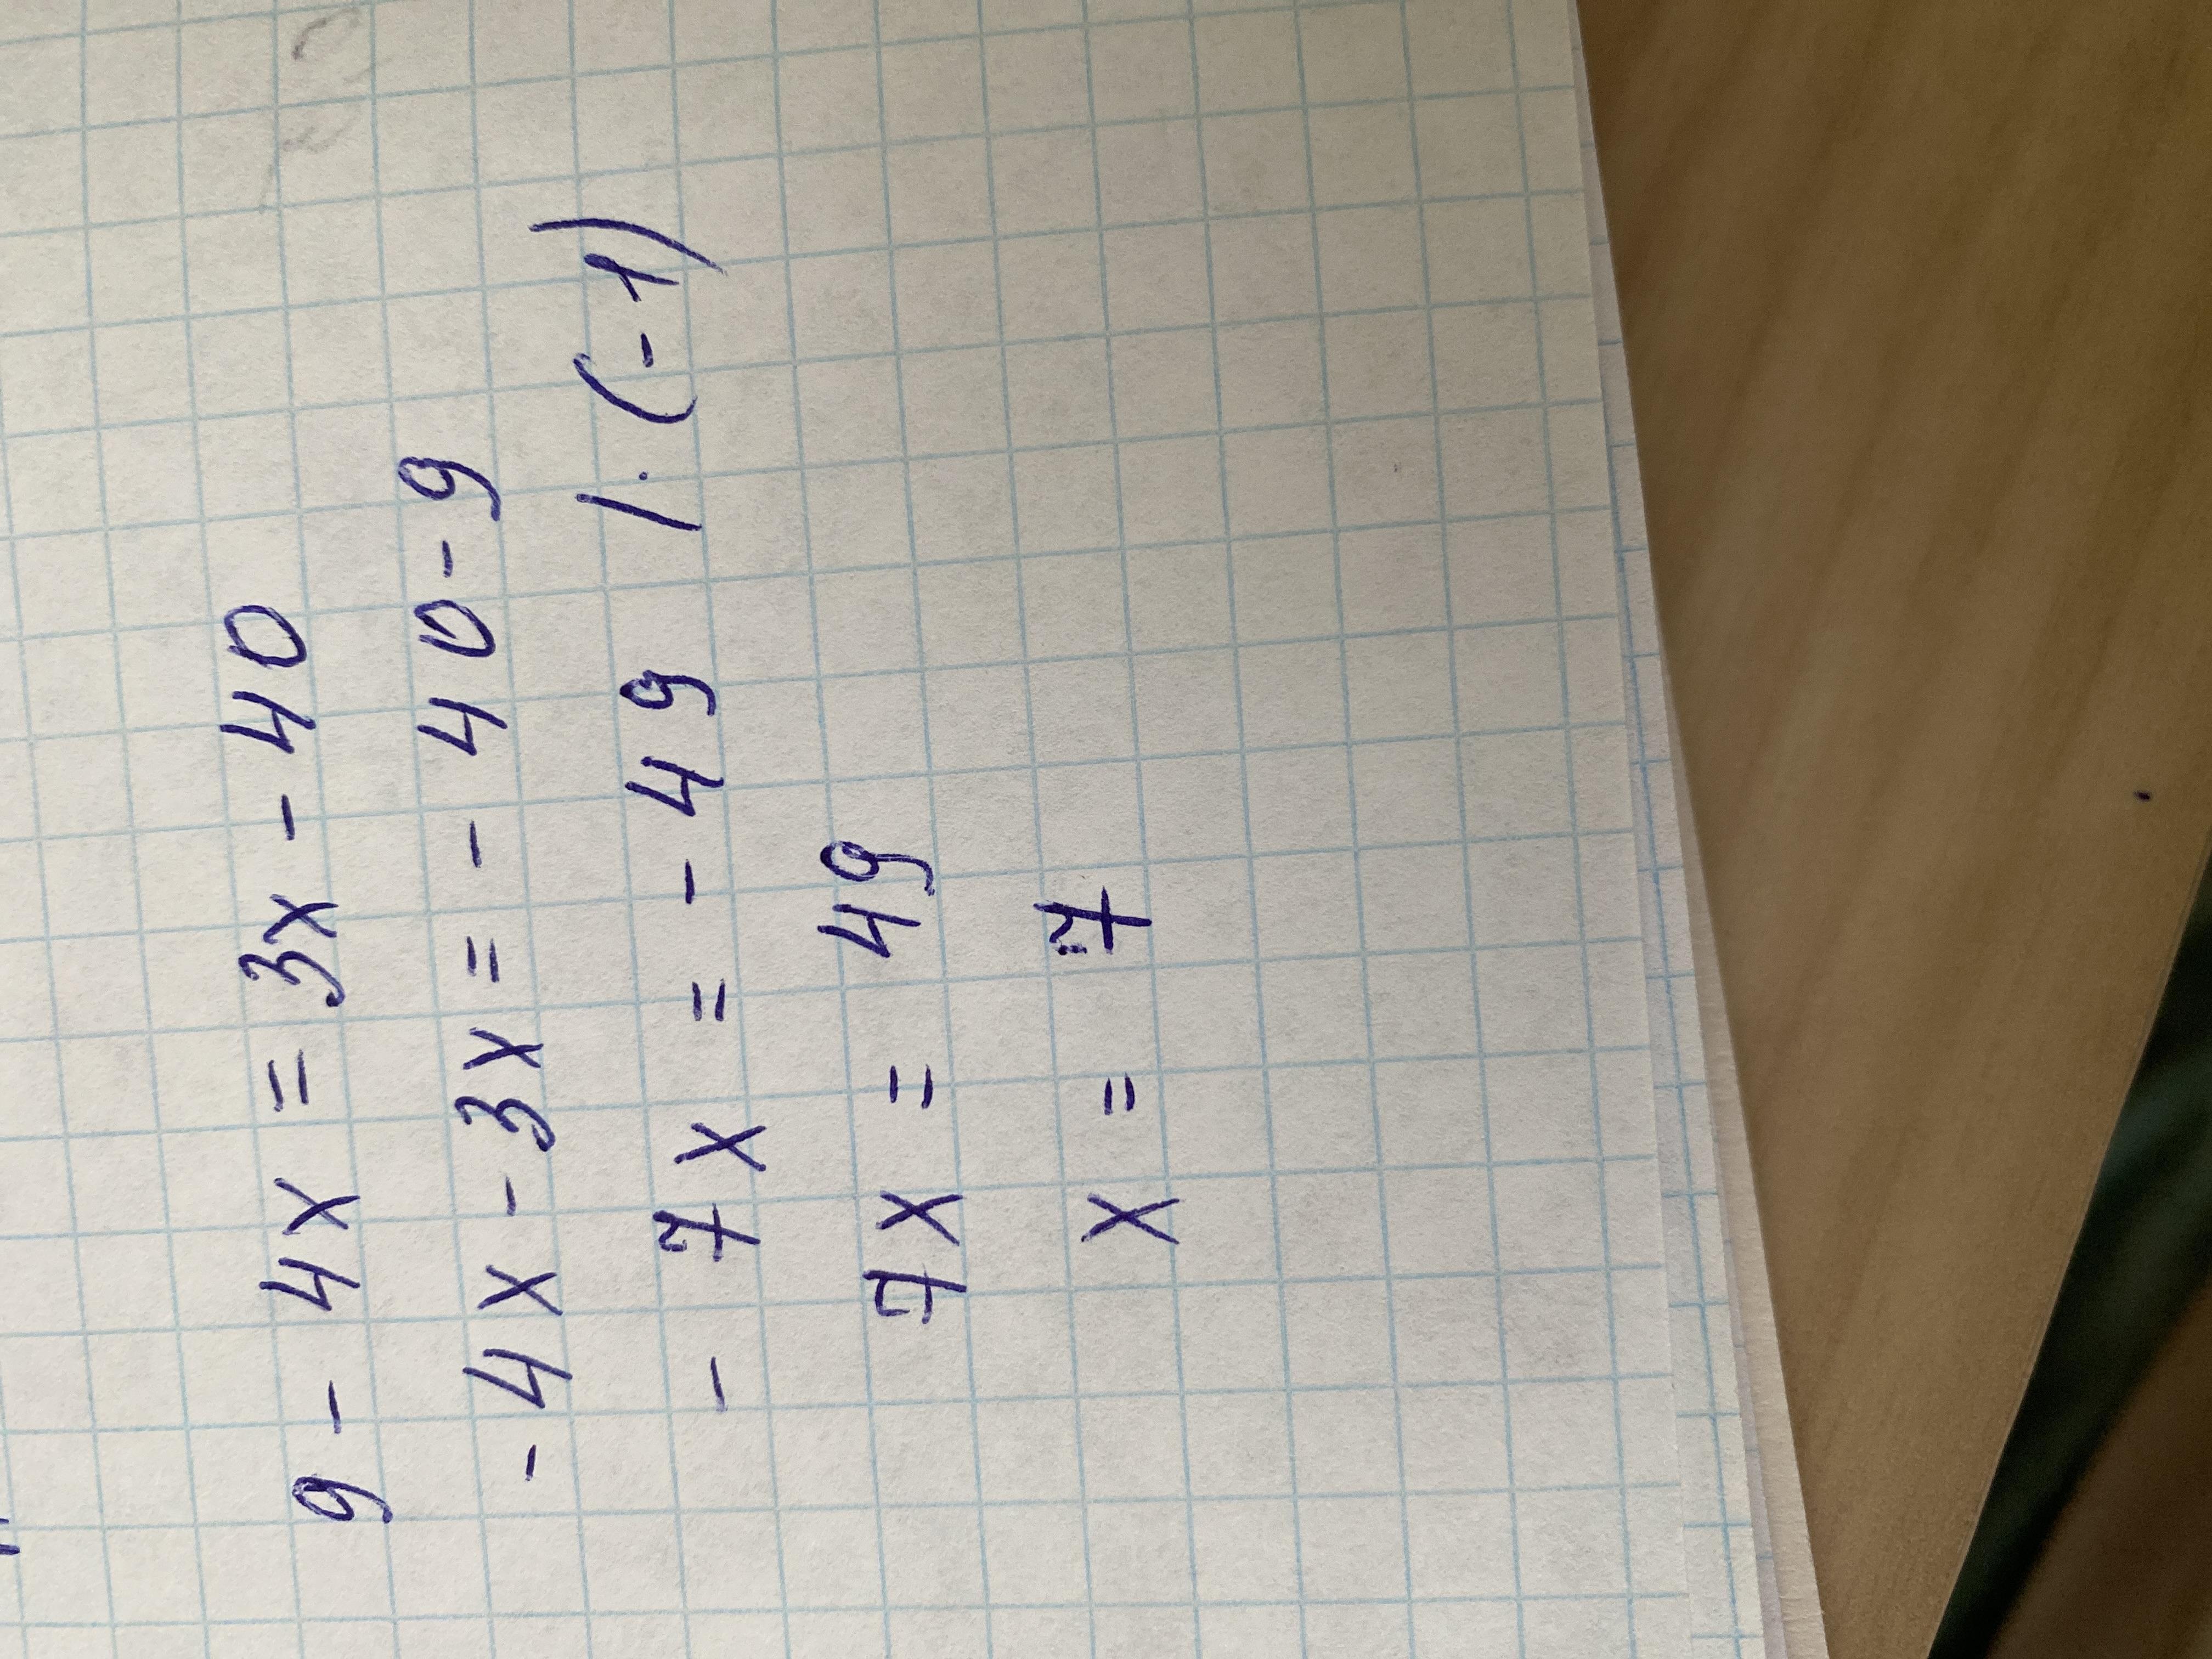 9 - 4x = 3x - 40
- 4x - 3x = - 40 - 9
- 7x = - 49 / · (-1)
7x = 49
x = 7